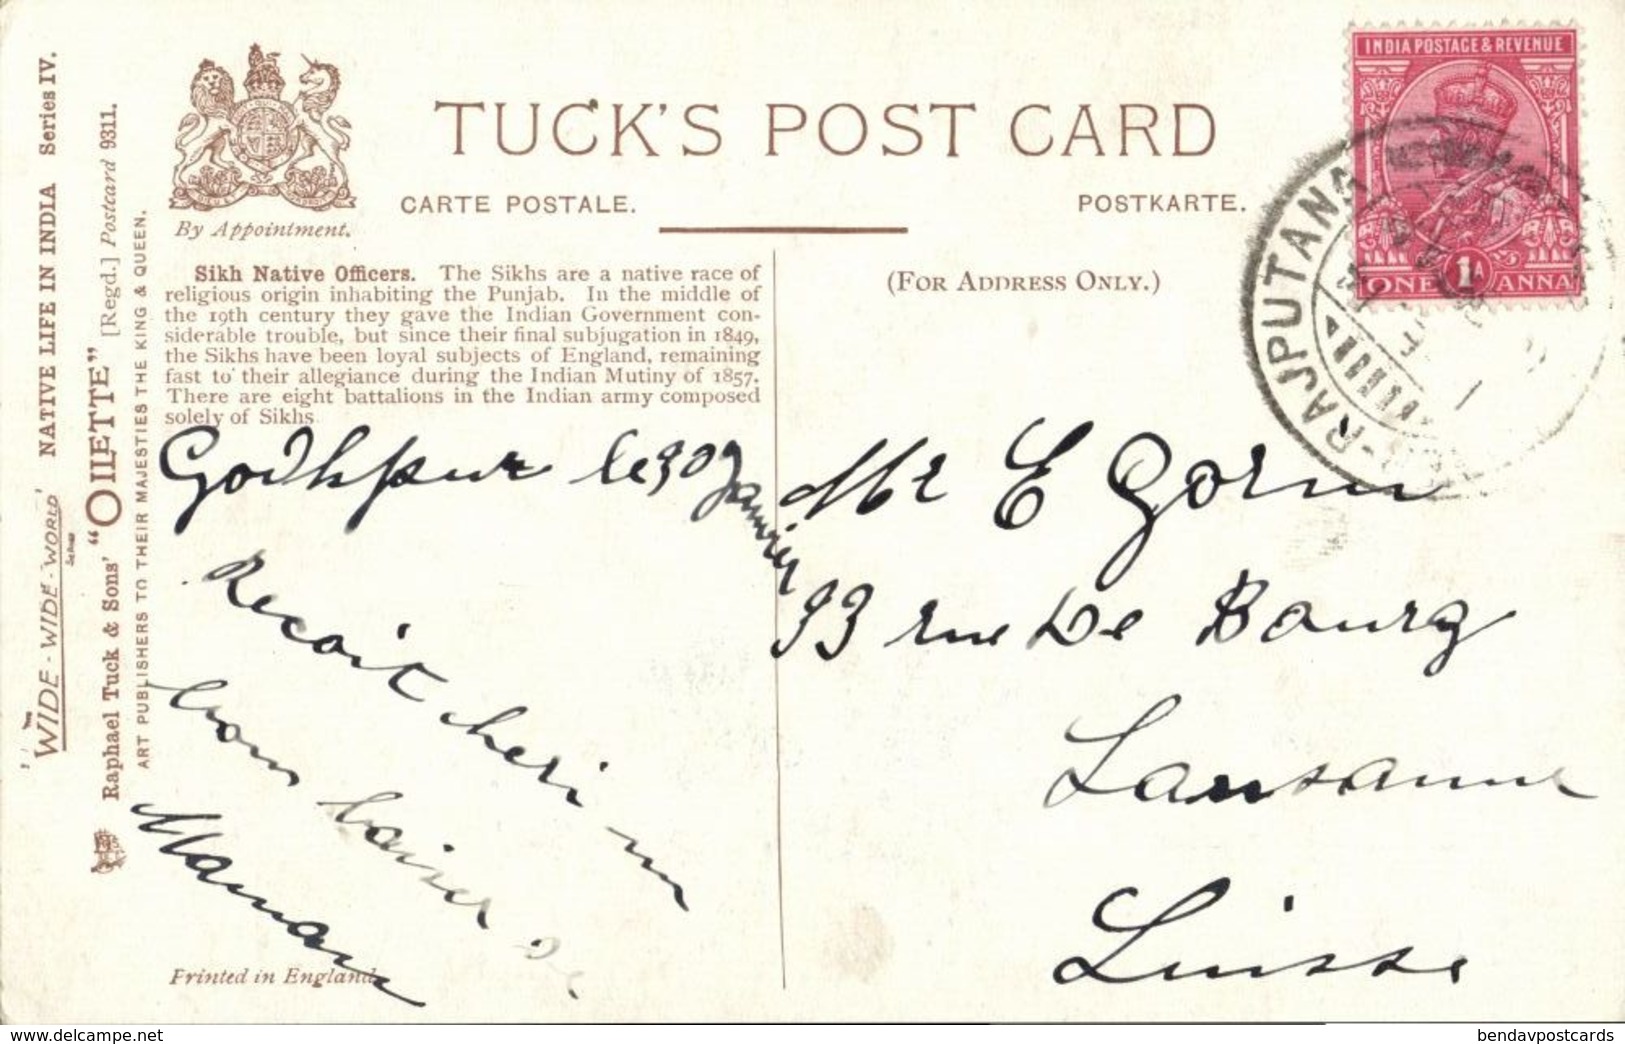 TUCK'S POST CARD
CARTE POSTALE.
POSTKARTE.
By Appointment.
"WIDE-WIDE-WORLD"
Series
NATIVE LIFE IN INDIA Series IV.
Raphael Tuck & Sons' "OILETTE" [Regd.] Postcard 9311.
ART PUBLISHERS TO THEIR MAJESTIES THE KING & QUEEN.
Sikh Native Officers. The Sikhs are a native race of
religious origin inhabiting the Punjab. In the middle of
the 19th century they gave the Indian Government con-
siderable trouble, but since their final subjugation in 1849,
the Sikhs have been loyal subjects of England, remaining
fast to their allegiance during the Indian Mutiny of 1857.
There are eight battalions in the Indian army composed
solely of Sikhs.
Godhpur le 30 Janvier
Recoit cheri un
bon baiser de
Maman
Printed in England.
(FOR ADDRESS ONLY.)
INDIA POSTAGE & REVENUE
ONE 1A ANNA
RAJPUTANA
Mr E Gorm
33 rue De Bourg
Lausanne
Suisse
www.delcampe.net
bendavpostcards